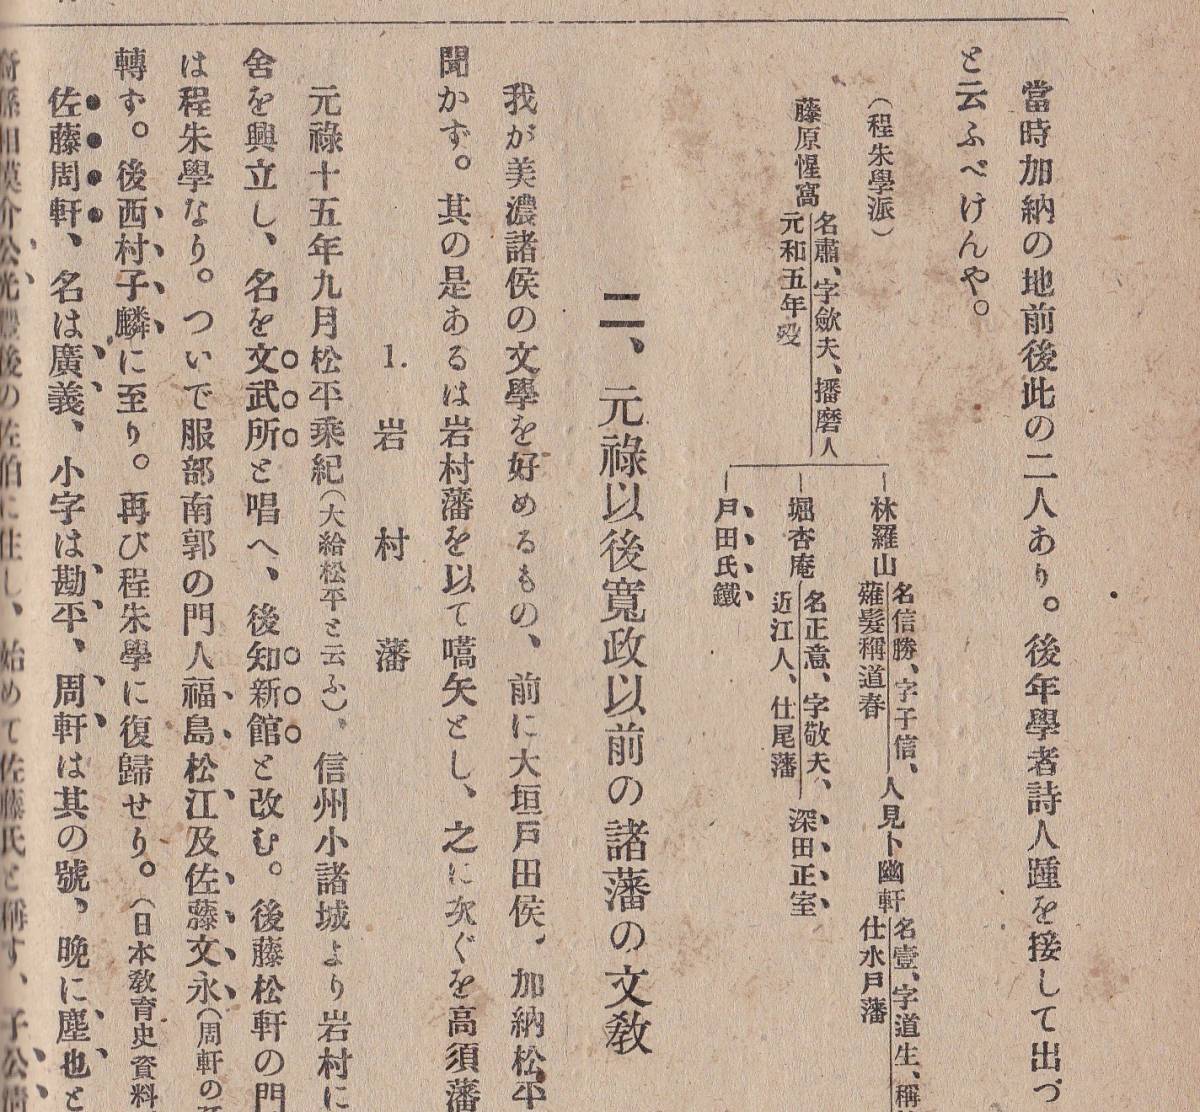 當時加納の地前後此の二人あり。後年學者詩人踵を接して出づ
と云ふべけんや。
(程朱學派)
藤原惺窩 名肅、字歛夫、播磨人
元和五年歿
林羅山 名信勝、字子信、
薙髮稱道春
人見卜幽軒 名壹、字道生、稱
仕水戸藩
堀杏庵 名正意、字敬夫、
近江人、仕尾藩
深田正室
戸田氏鐵
二、元祿以後寬政以前の諸藩の文教
我が美濃諸侯の文學を好めるもの、前に大垣戸田侯、加納松平
聞かず。其の是あるは岩村藩を以て嚆矢とし、之に次ぐを高須藩
1. 岩村藩
元祿十五年九月松平乘紀(大給松平と云ふ)、信州小諸城より岩村に
舍を興立し、名を文武所と唱へ、後知新館と改む。後藤松軒の門
は程朱學なり。ついで服部南郭の門人福島松江及佐藤文永(周軒の
轉ず。後西村子麟に至り。再び程朱學に復歸せり。(日本敎育史資料
佐藤周軒、名は廣義、小字は勘平、周軒は其の號、晩に塵也と
裔孫相模介公光豊後の佐伯に住し、始めて佐藤氏と稱す、子公淸